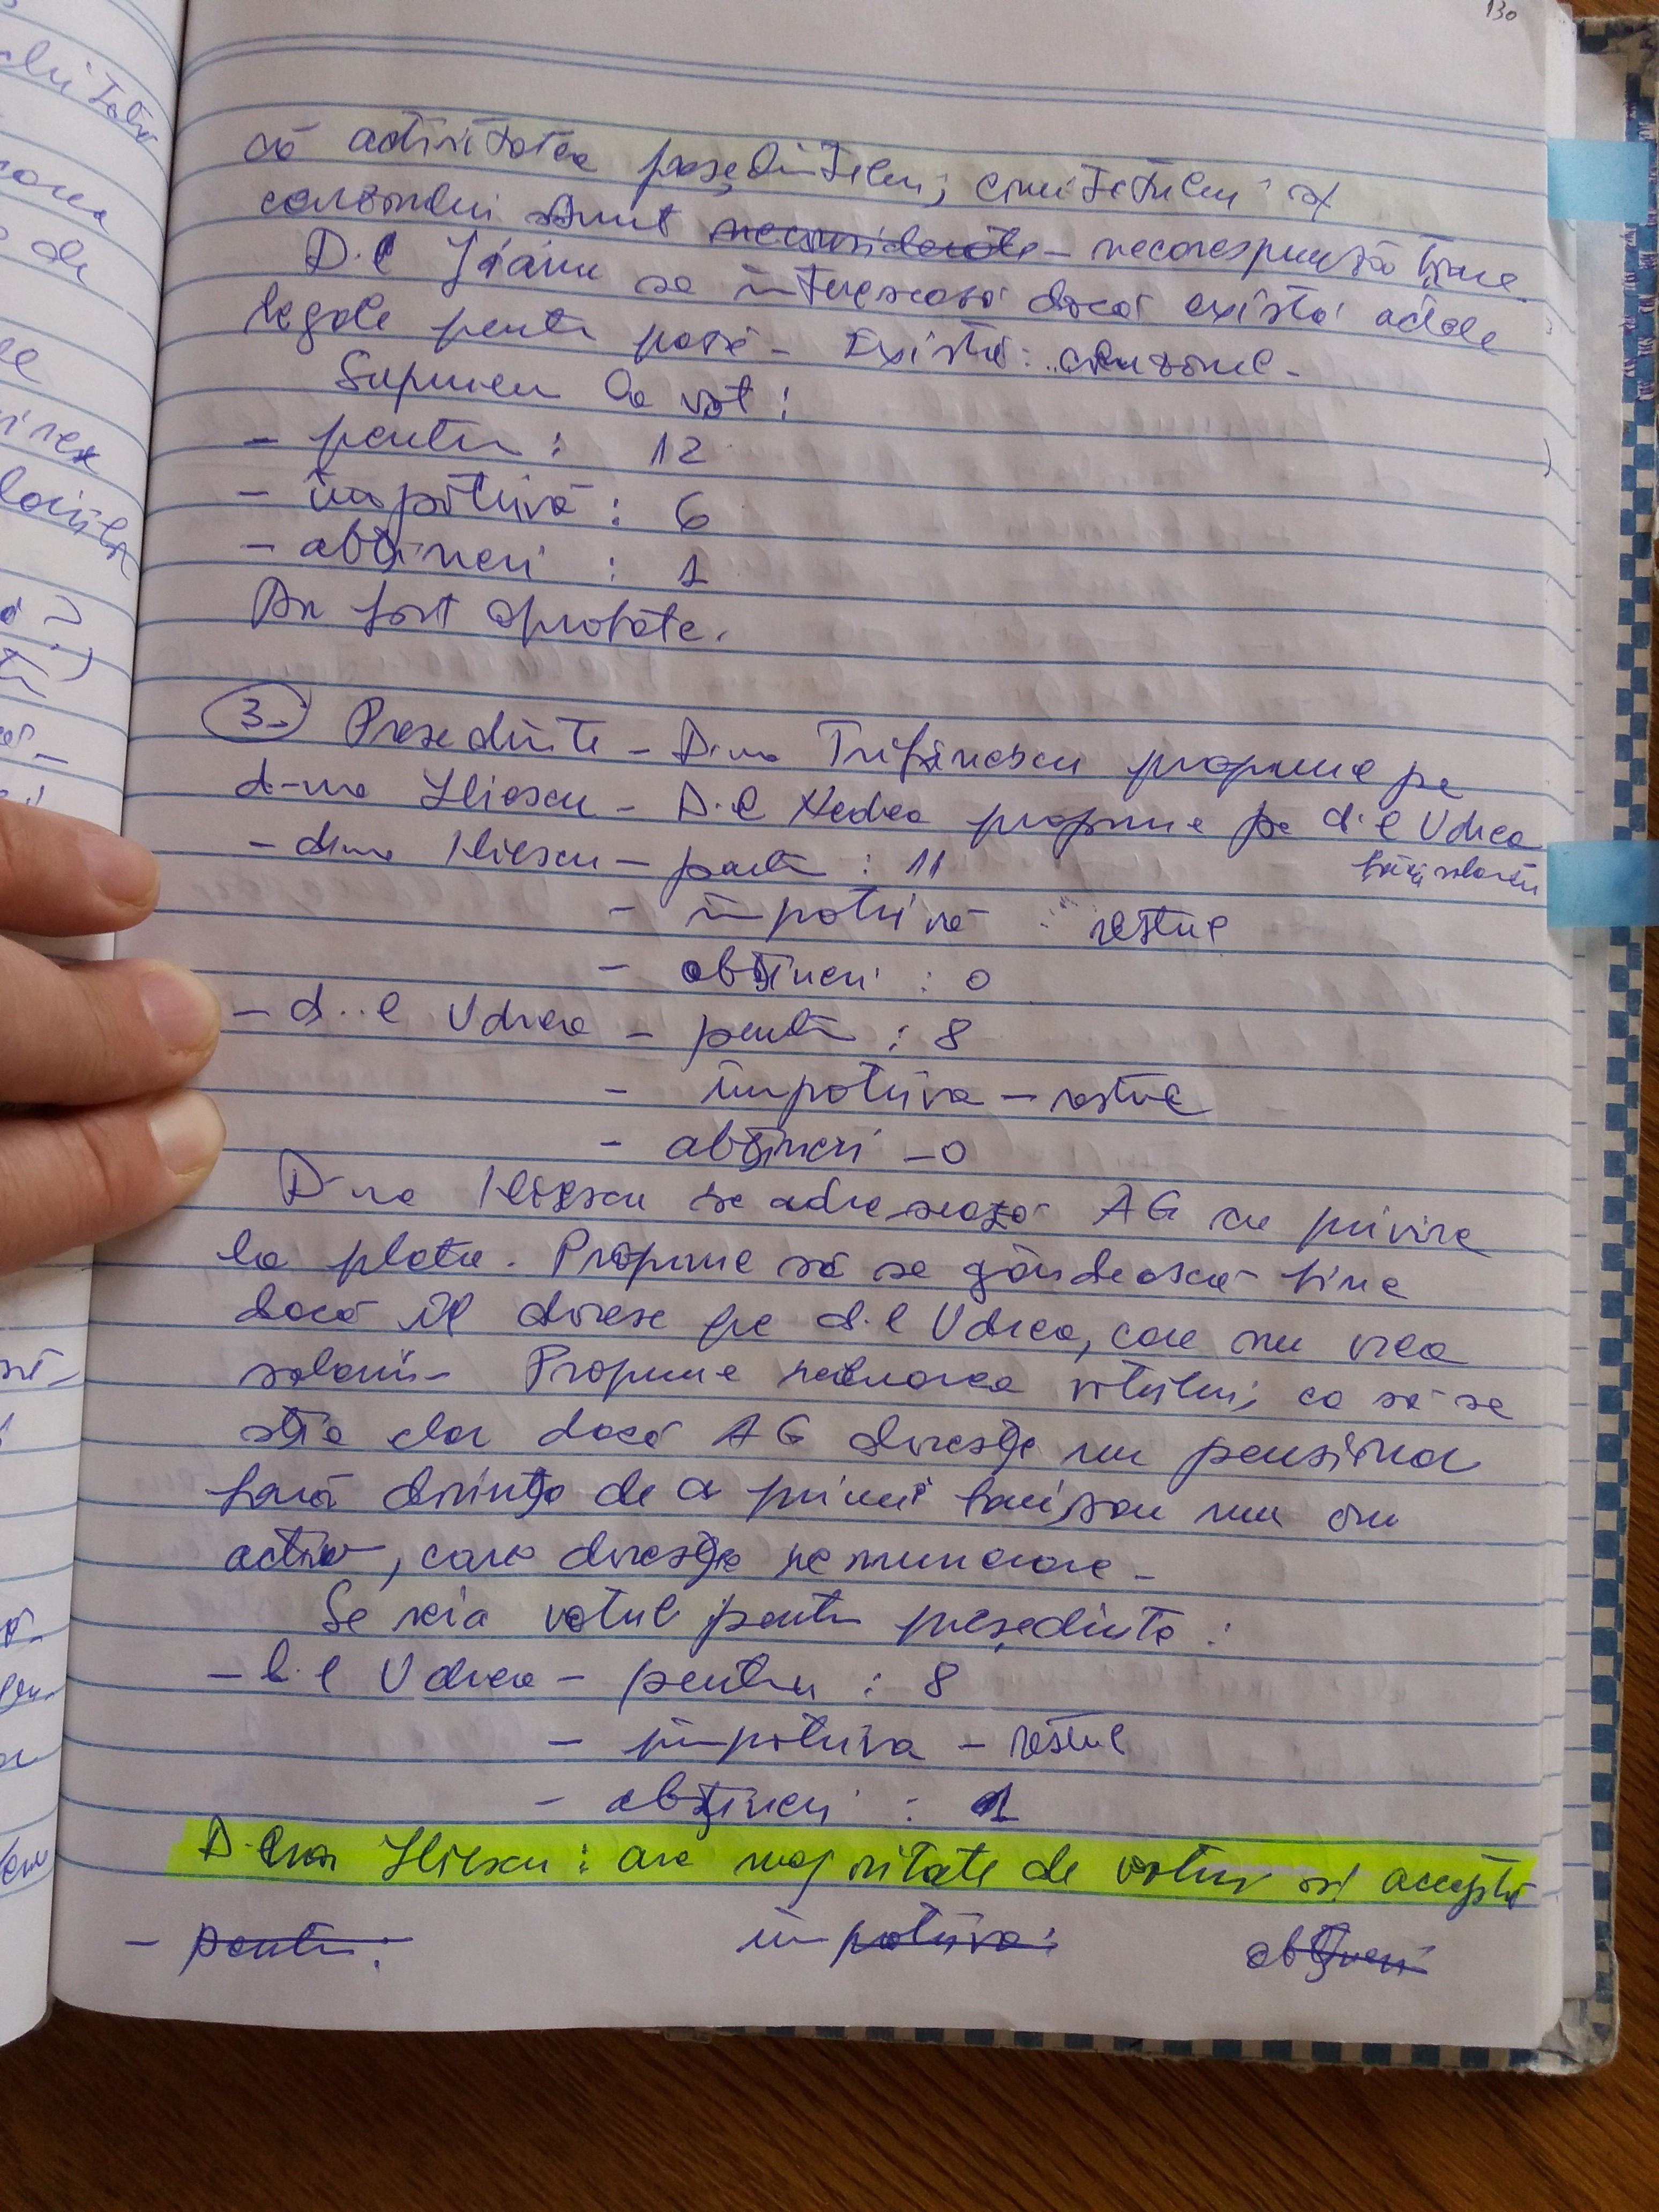 130
că activitatea președintelui, comitetului și
cenzorului sunt neconsiderate - necorespunzătoare.
D.l se interesează dacă există actele
legale pentru Există: cenzorul -
Supunem la vot:
- pentru : 12
- împotrivă : 6
- abțineri : 1
Au fost aprobate.
3. Președinte - D.na Trifănescu propune pe
d-na Iliescu - D.l Nedrea propune pe d.l Udrea
fără salariu
- d.na Iliescu - pentru : 11
- împotrivă : restul
- abțineri : 0
- d.l Udrea - pentru : 8
- împotriva - restul
- abțineri - 0
D-na Iliescu se adresează AG cu privire
la plata. Propune să se gândească bine
dacă îl doresc pe d.l Udrea, care nu vrea
salariu. Propune reluarea votului, ca să se
știe clar dacă AG dorește un pensionar
fără dorința de a primi bani, sau un om
activ, care dorește remunerare -
Se reia votul pentru președinte :
- d.l Udrea - pentru : 8
- împotriva - restul
- abțineri : 1
D-na Iliescu : are majoritate de voturi și acceptă
- pentru : împotriva : abțineri